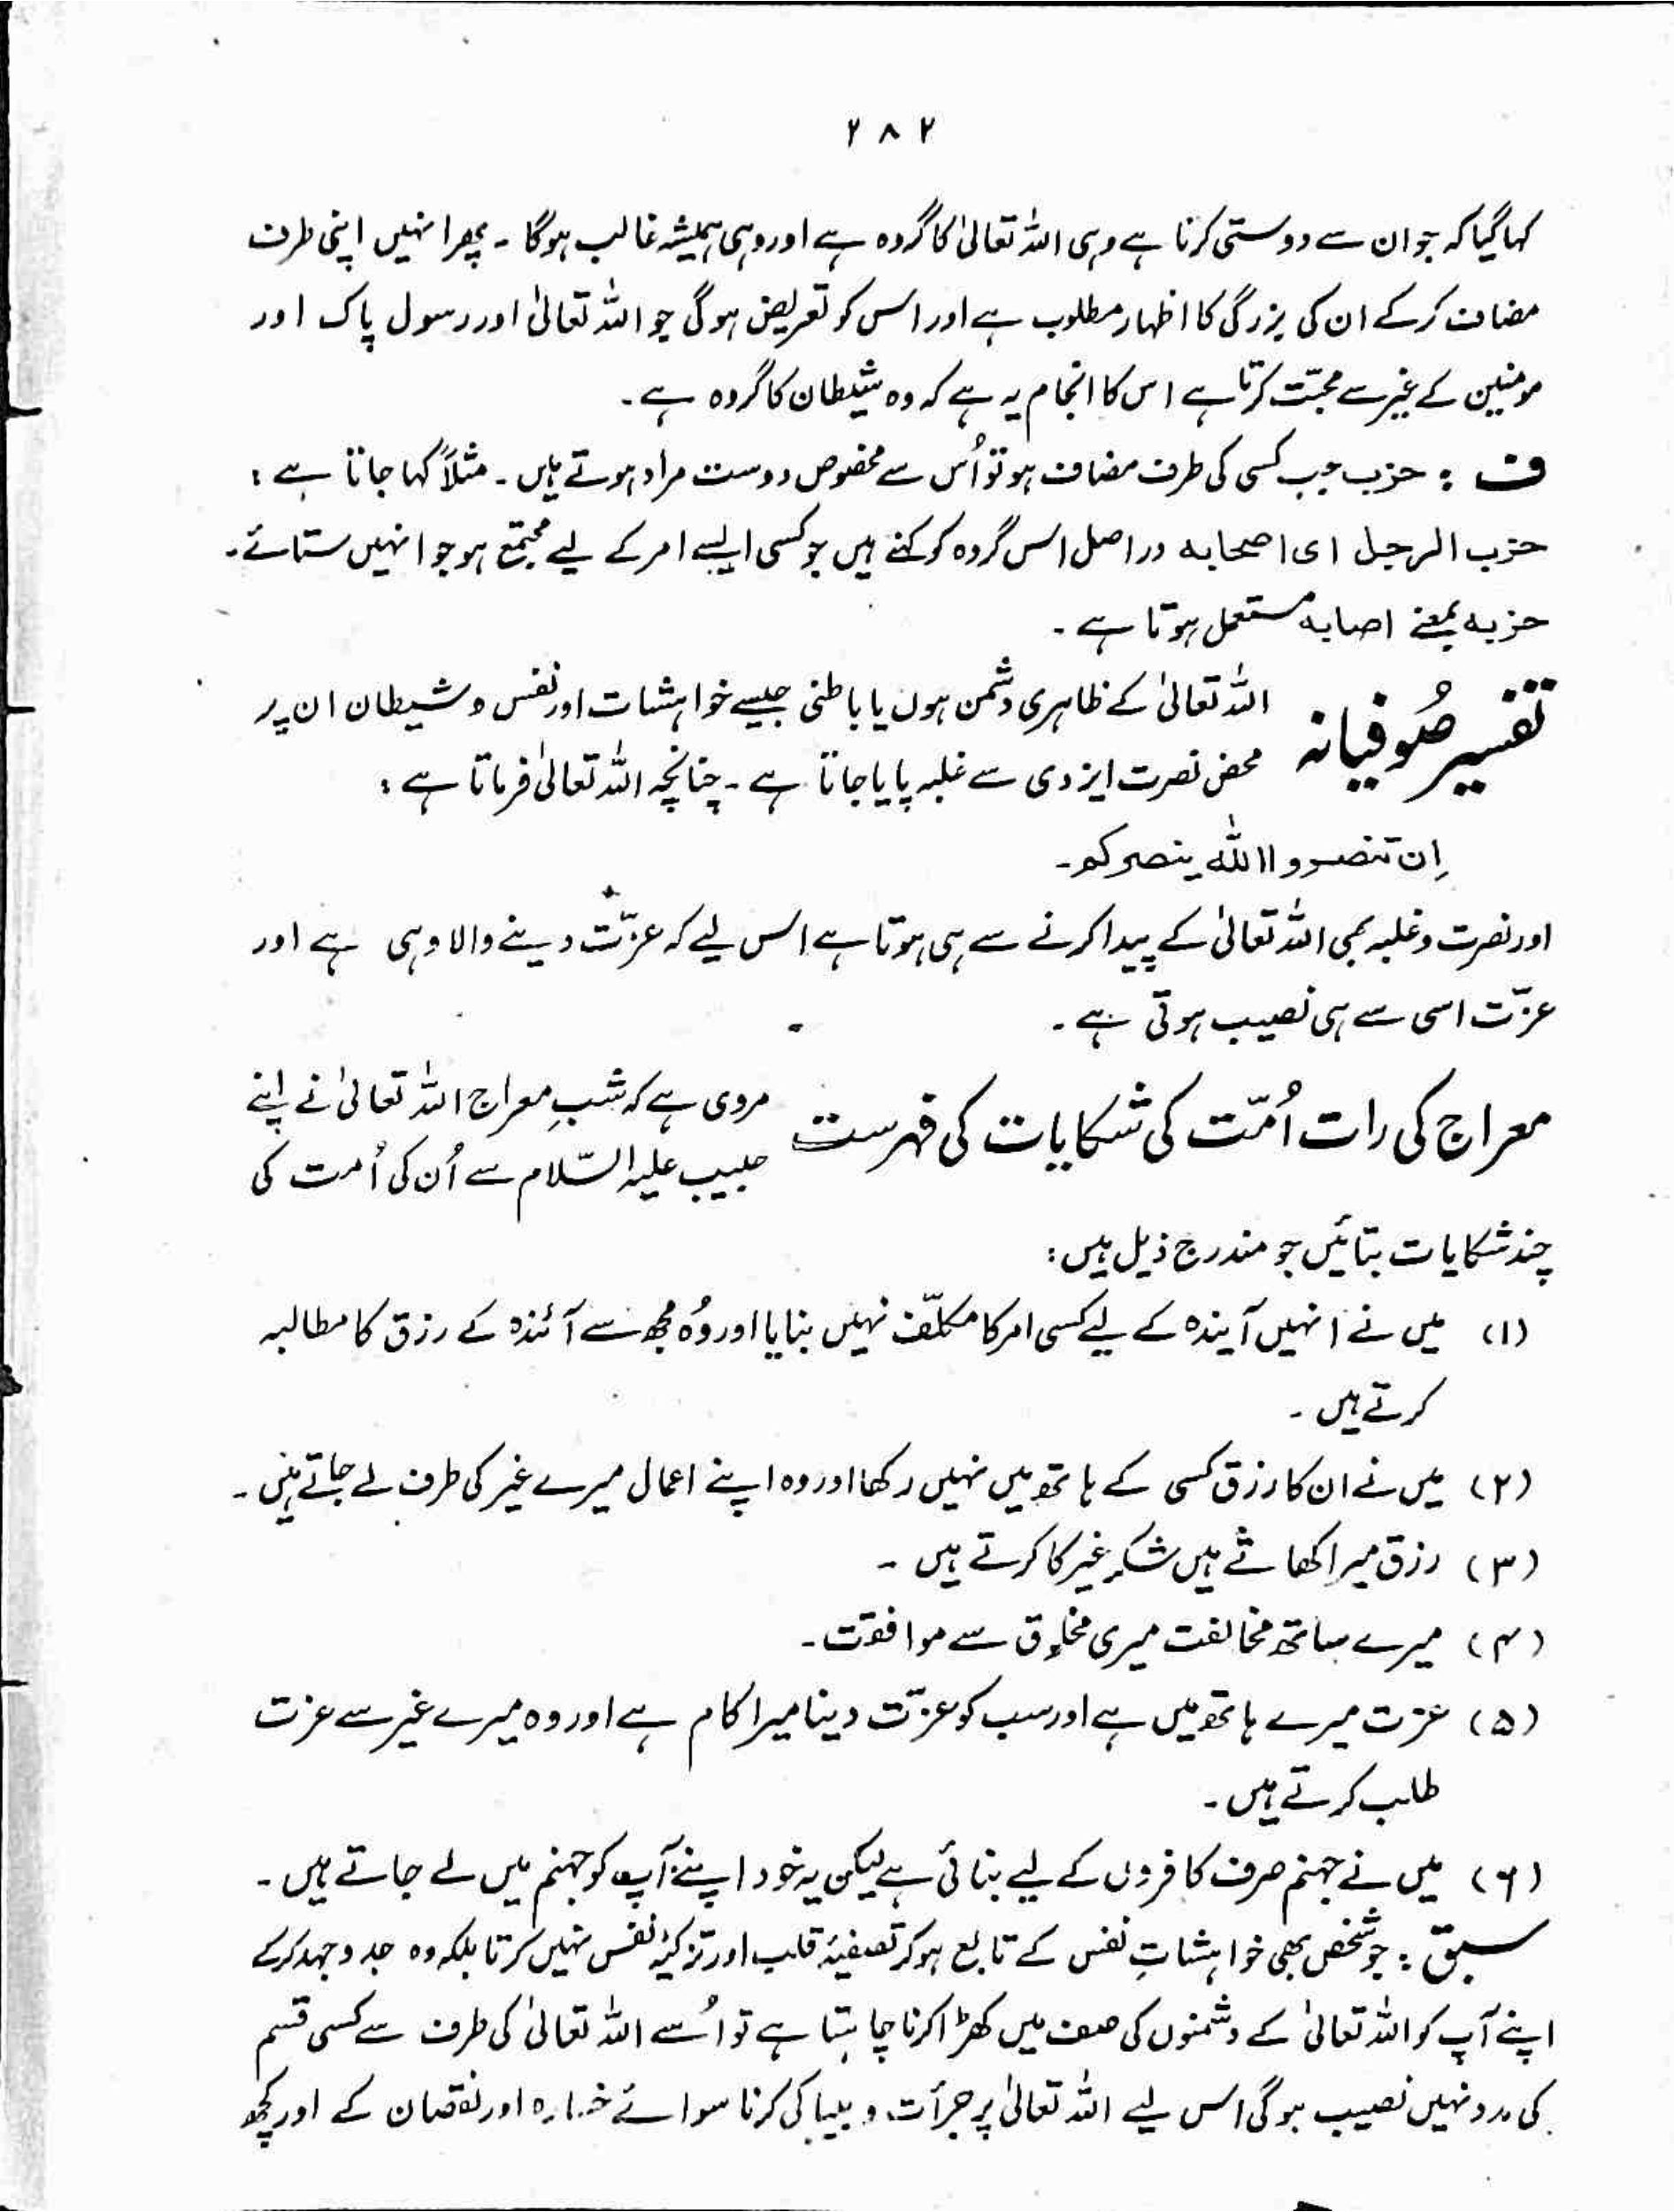 ۲۸۲
کہا گیا کہ جو ان سے دوستی کرتا ہے وہی اللہ تعالیٰ کا گروہ ہے اور وہی ہمیشہ غالب ہوگا ۔ پھر انہیں اپنی طرف
مضاف کر کے ان کی بزرگی کا اظہار مطلوب ہے اور اس کو تعریض ہوگی جو اللہ تعالیٰ اور رسول پاک اور
مومنین کے غیر سے محبّت کرتا ہے اس کا انجام یہ ہے کہ وہ شیطان کا گروہ ہے ۔
ف : حزب جب کسی کی طرف مضاف ہو تو اُس سے مخصوص دوست مراد ہوتے ہیں ۔ مثلاً کہا جاتا ہے :
حزب الرجل ای اصحابه در اصل اس گروہ کو کہتے ہیں جو کسی ایسے امر کے لیے مجتمع ہو جو انہیں ستائے ۔
حزبه بمعنے اصابه مستعمل ہوتا ہے ۔
تفسیر صُوفیانہ اللہ تعالیٰ کے ظاہری دشمن ہوں یا باطنی جیسے خواہشات اور نفس و شیطان ان پر
محض نصرت ایزدی سے غلبہ پایا جاتا ہے ۔ چنانچہ اللہ تعالیٰ فرماتا ہے :
اِن تنصروا اللّٰه ینصرکم ۔
اور نصرت و غلبہ بھی اللہ تعالیٰ کے پیدا کرنے سے ہی ہوتا ہے اس لیے کہ عزّت دینے والا وہی ہے اور
عزّت اسی سے ہی نصیب ہوتی ہے ۔
معراج کی رات اُمّت کی شکایات کی فہرست مروی ہے کہ شبِ معراج اللہ تعالیٰ نے اپنے
حبیب علیہ السّلام سے اُن کی اُمت کی
چند شکایات بتائیں جو مندرج ذیل ہیں :
(۱) میں نے انہیں آیندہ کے لیے کسی امر کا مکلّف نہیں بنایا اور وُہ مجھ سے آئندہ کے رزق کا مطالبہ
کرتے ہیں ۔
(۲) میں نے ان کا رزق کسی کے ہاتھ میں نہیں رکھا اور وہ اپنے اعمال میرے غیر کی طرف لے جاتے ہیں ۔
(۳) رزق میرا کھاتے ہیں شکر غیر کا کرتے ہیں ۔
(۴) میرے ساتھ مخالفت میری مخلوق سے موافقت ۔
(۵) عزت میرے ہاتھ میں ہے اور سب کو عزّت دینا میرا کام ہے اور وہ میرے غیر سے عزت
طلب کرتے ہیں ۔
(۶) میں نے جہنم صرف کافروں کے لیے بنائی ہے لیکن یہ خود اپنے آپ کو جہنم میں لے جاتے ہیں ۔
سبق : جو شخص بھی خواہشاتِ نفس کے تابع ہو کر تصفیۂ قلب اور تزکیۂ نفس نہیں کرتا بلکہ وہ جد و جہد کر کے
اپنے آپ کو اللہ تعالیٰ کے دشمنوں کی صف میں کھڑا کرنا چاہتا ہے تو اُسے اللہ تعالیٰ کی طرف سے کسی قسم
کی مدد نہیں نصیب ہوگی اس لیے اللہ تعالیٰ پر جرأت و بیباکی کرنا سوائے خسارہ اور نقصان کے اور کچھ